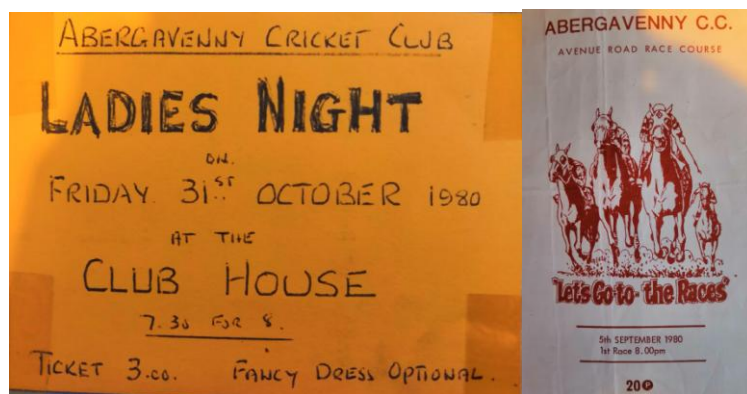 ABERGAVENNY CRICKET CLUB
LADIES NIGHT
ON.
FRIDAY. 31ST OCTOBER 1980
AT THE
CLUB HOUSE
7.30 FOR 8.
TICKET 3.00. FANCY DRESS OPTIONAL.
ABERGAVENNY C.C.
AVENUE ROAD RACE COURSE
"Let's Go-to-the Races"
5th SEPTEMBER 1980
1st Race 8.00pm
20P